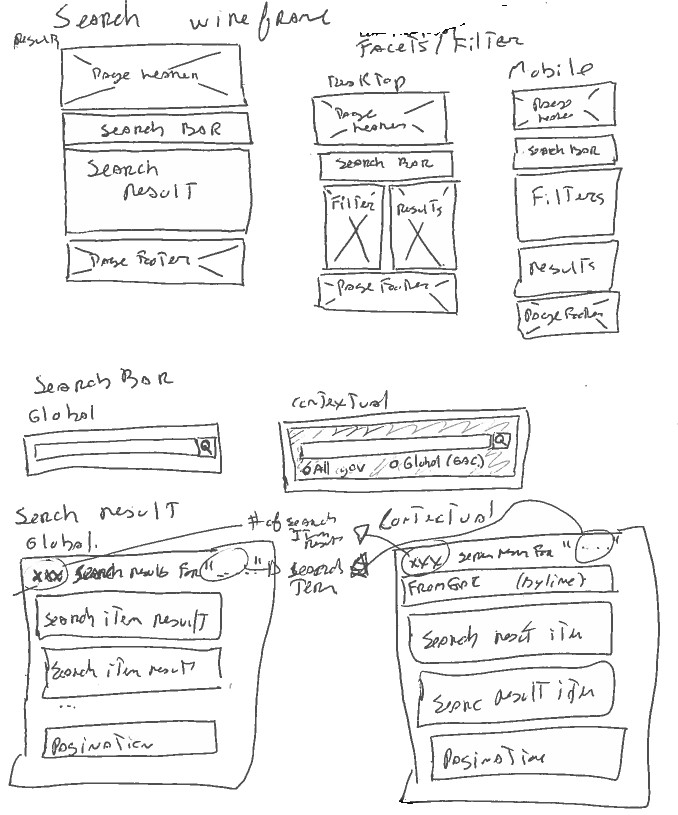 Search wireframe
Result
Page header
Search Bar
Search
Result
Page Footer
Facets/Filter
Desktop
Page
header
Search Bar
Filter
Results
Page Footer
Mobile
Page
header
Search Bar
Filters
Results
Page Footer
Search Bar
Global
Contextual
All gov O Global (GAC)
Serch result
Global.
# of search
Item
Result
Search
Term
xxx Search results for "_ ... "
Search item result
Search item result
...
Pagination
Contectual
xxx Serch Result For "...."
(byline)
Search result item
Searc result item
Pagination